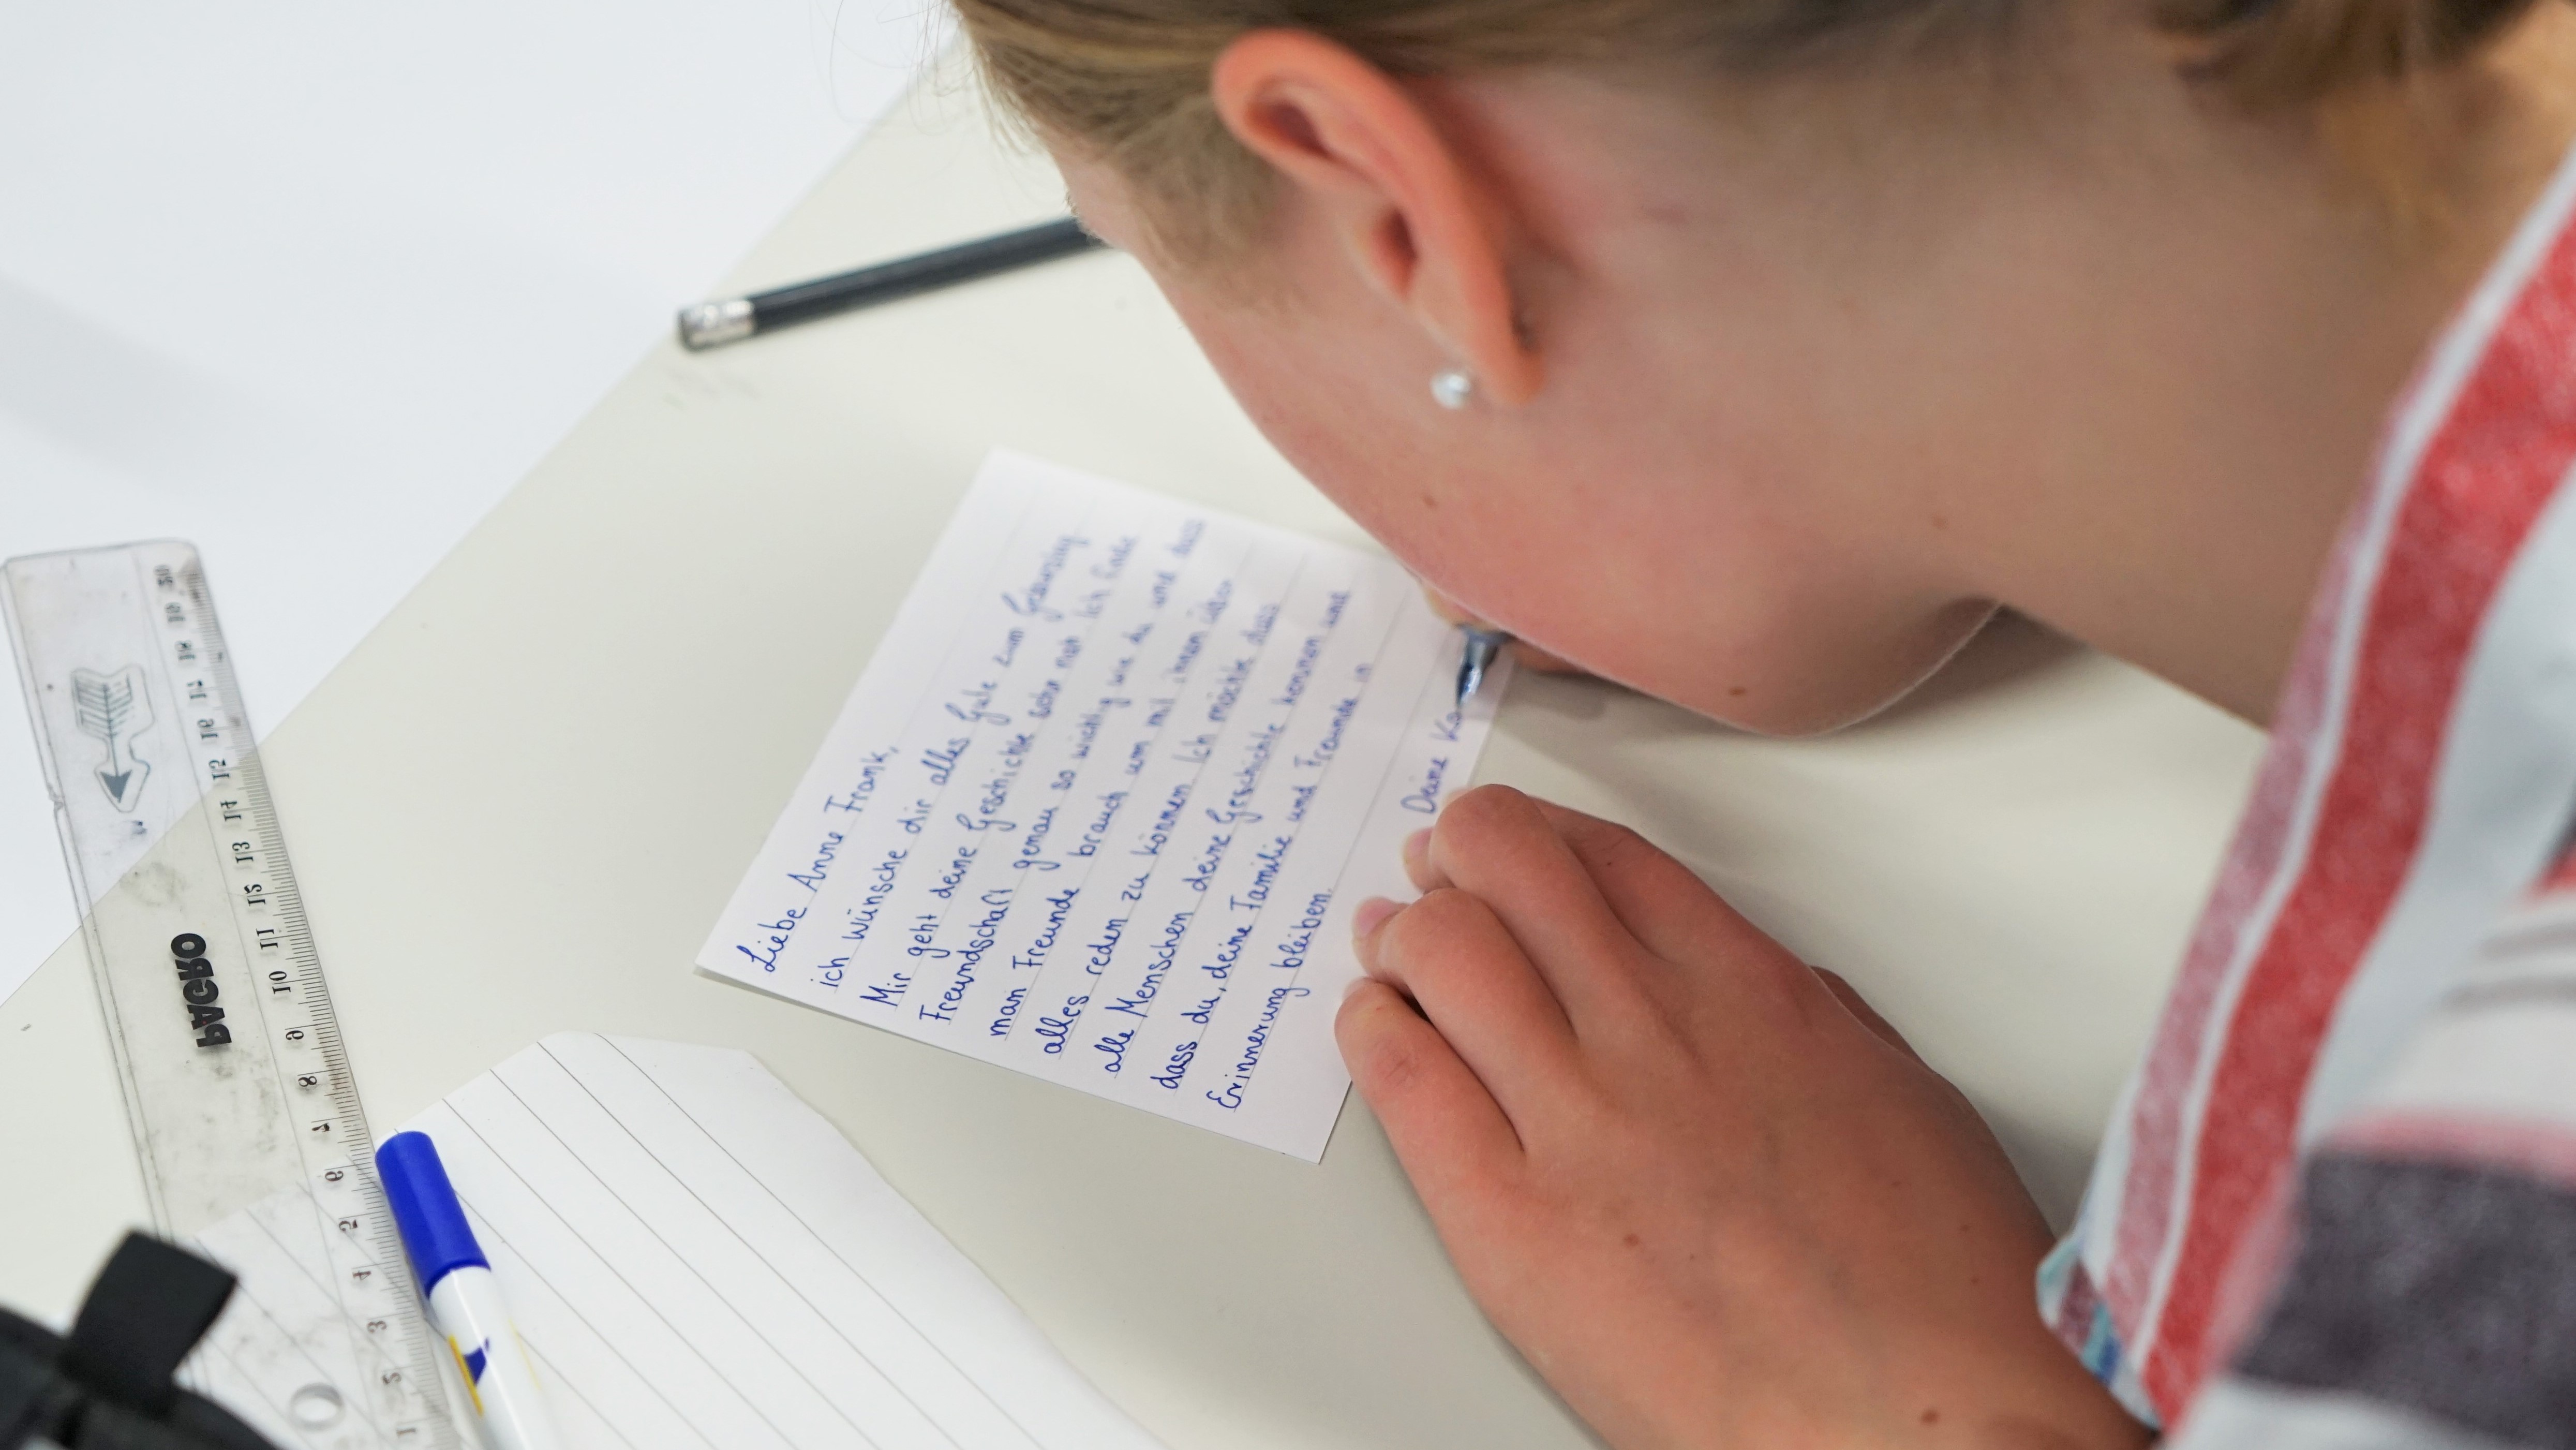 Liebe Anne Frank,
ich wünsche dir alles Gute zum
Mir geht deine Geschichte schon nah. Ich finde
Freundschaft genau so wichtig wie du und dass
man Freunde brauch um mit ihnen über
alles reden zu können. Ich möchte dass
alle Menschen deine Geschichte kennen und
dass du, deine Familie und Freunde in
Erinnerung bleiben.
Deine Ka
PAGRO
1 2 3 4 5 6 7 8 9 10 11 12 13 14 15 16 17 18 19 20